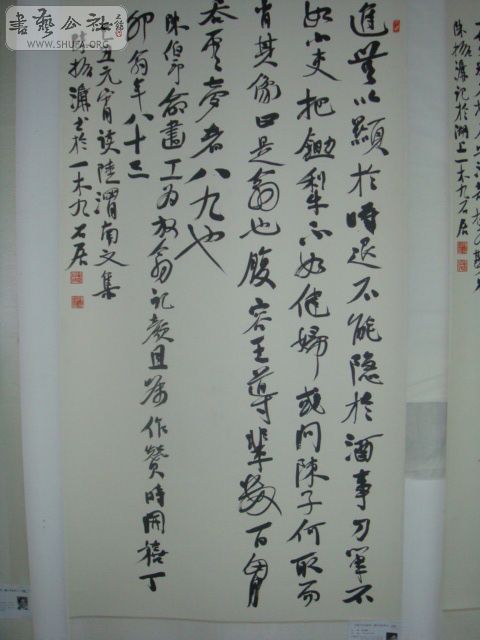 書藝公社
WWW.SHUFA.ORG
陳振濂記於湖上一木九石居
進無以顯於時退不能隱於酒事刀筆不
如小吏把鋤犁不如健婦或問陳子何取而
肖其像曰是翁也腹容王導輩數百胸
吞雲夢者八九也
陳伯予命畫工為放翁記顏且屬作贊時開禧丁
卯翁年八十三
五元宵讀陸渭南文集
陳振濂書於一木九石居